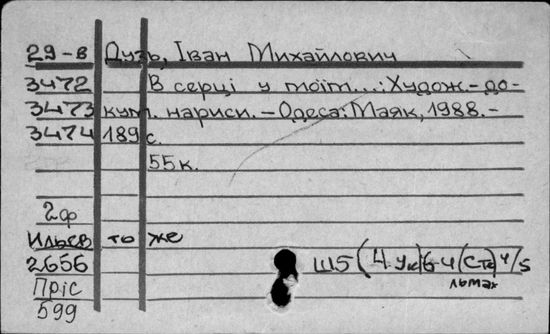 29-в Дузь, Іван Михайлович
3472 В серці у моїм...: Худож.-до-
3473 кум. нариси. – Одеса: Маяк, 1988. –
3474 189 с.
55к.
2ф
то же
2656 Ш5(4 Ук)6-4
Пріс
599